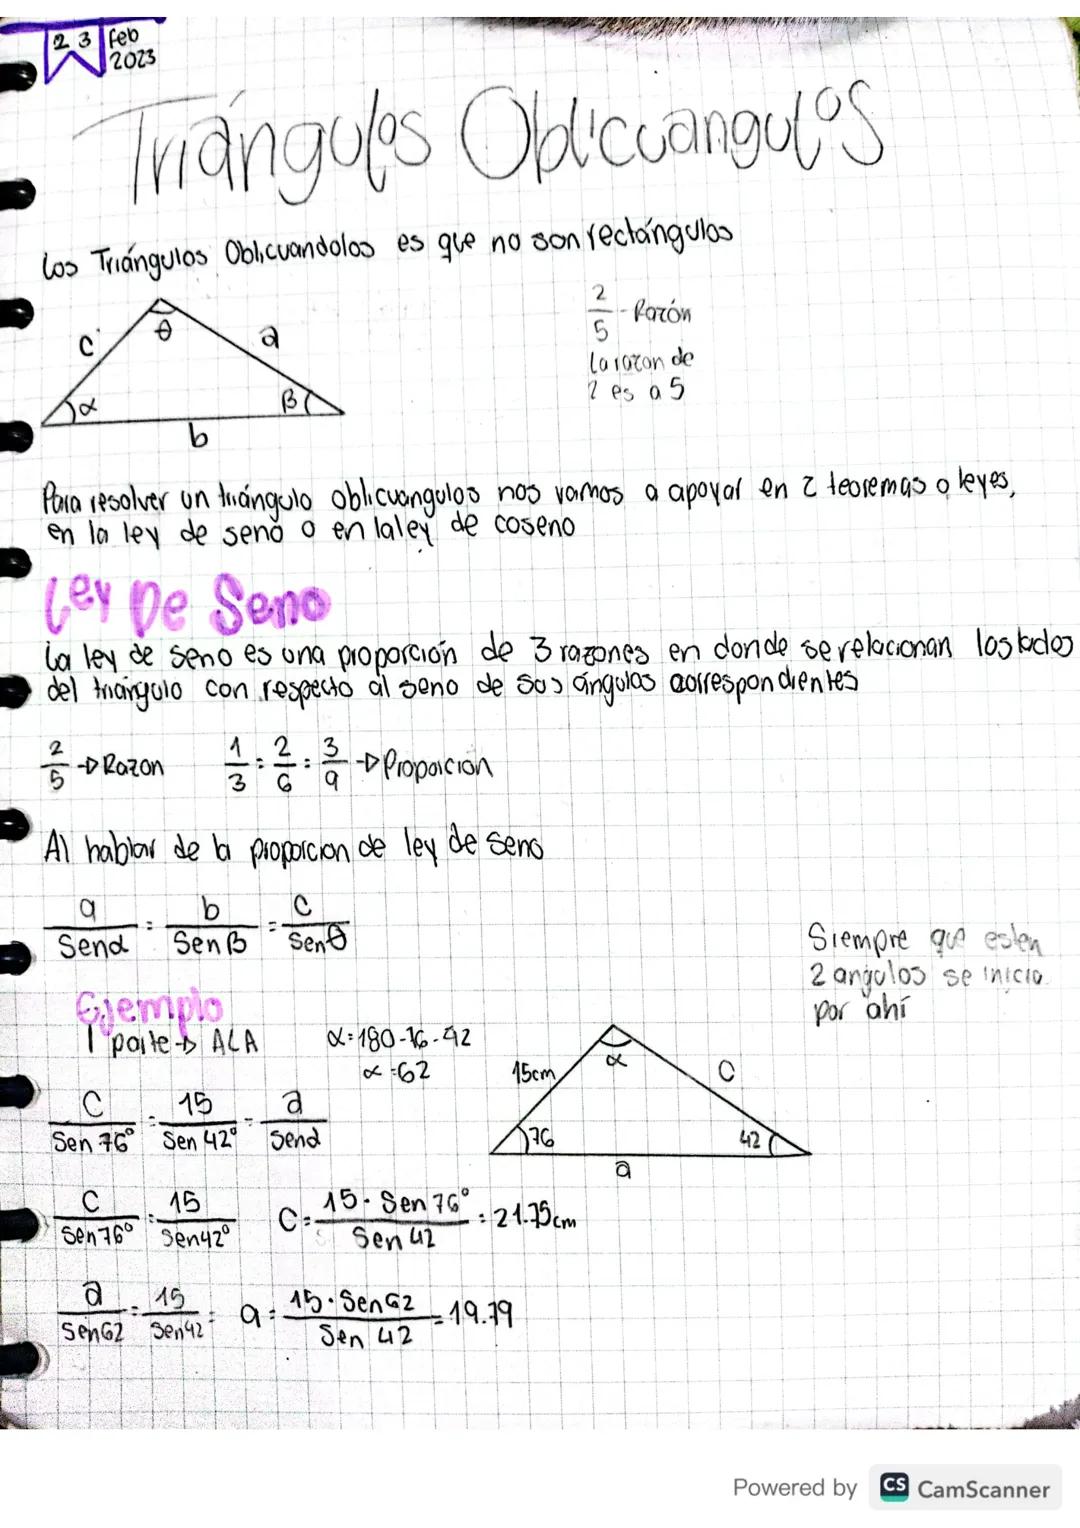 23 feb
2023
Triángulos Oblicuangulos
Los Triángulos Oblicuandolos es que no son rectángulos
c θ a
α β
b
2/5 - Razón
La razon de
2 es a 5
Para resolver un triángulo oblicuangulos nos vamos a apoyar en 2 teoremas o leyes,
en la ley de seno o en la ley de coseno
Ley De Seno
La ley de seno es una proporción de 3 razones en donde se relacionan los lados
del triángulo con respecto al seno de sus ángulos correspondientes
2/5 → Razon 1/3 = 2/6 = 3/9 → Proporción
Al hablar de la proporcion de ley de seno
a/Senα = b/Senβ = c/Senθ
Siempre que esten
2 angulos se inicia
por ahí
Ejemplo
1 parte → ALA α=180-76-42
α=62
15cm α C
76 42
a
C/Sen 76° = 15/Sen 42° = a/Senα
C/Sen76° = 15/Sen42° C = 15·Sen 76°/Sen 42 = 21.75cm
a/Sen62 = 15/Sen42 = a = 15·Sen62/Sen 42 = 19.79
Powered by CS CamScanner